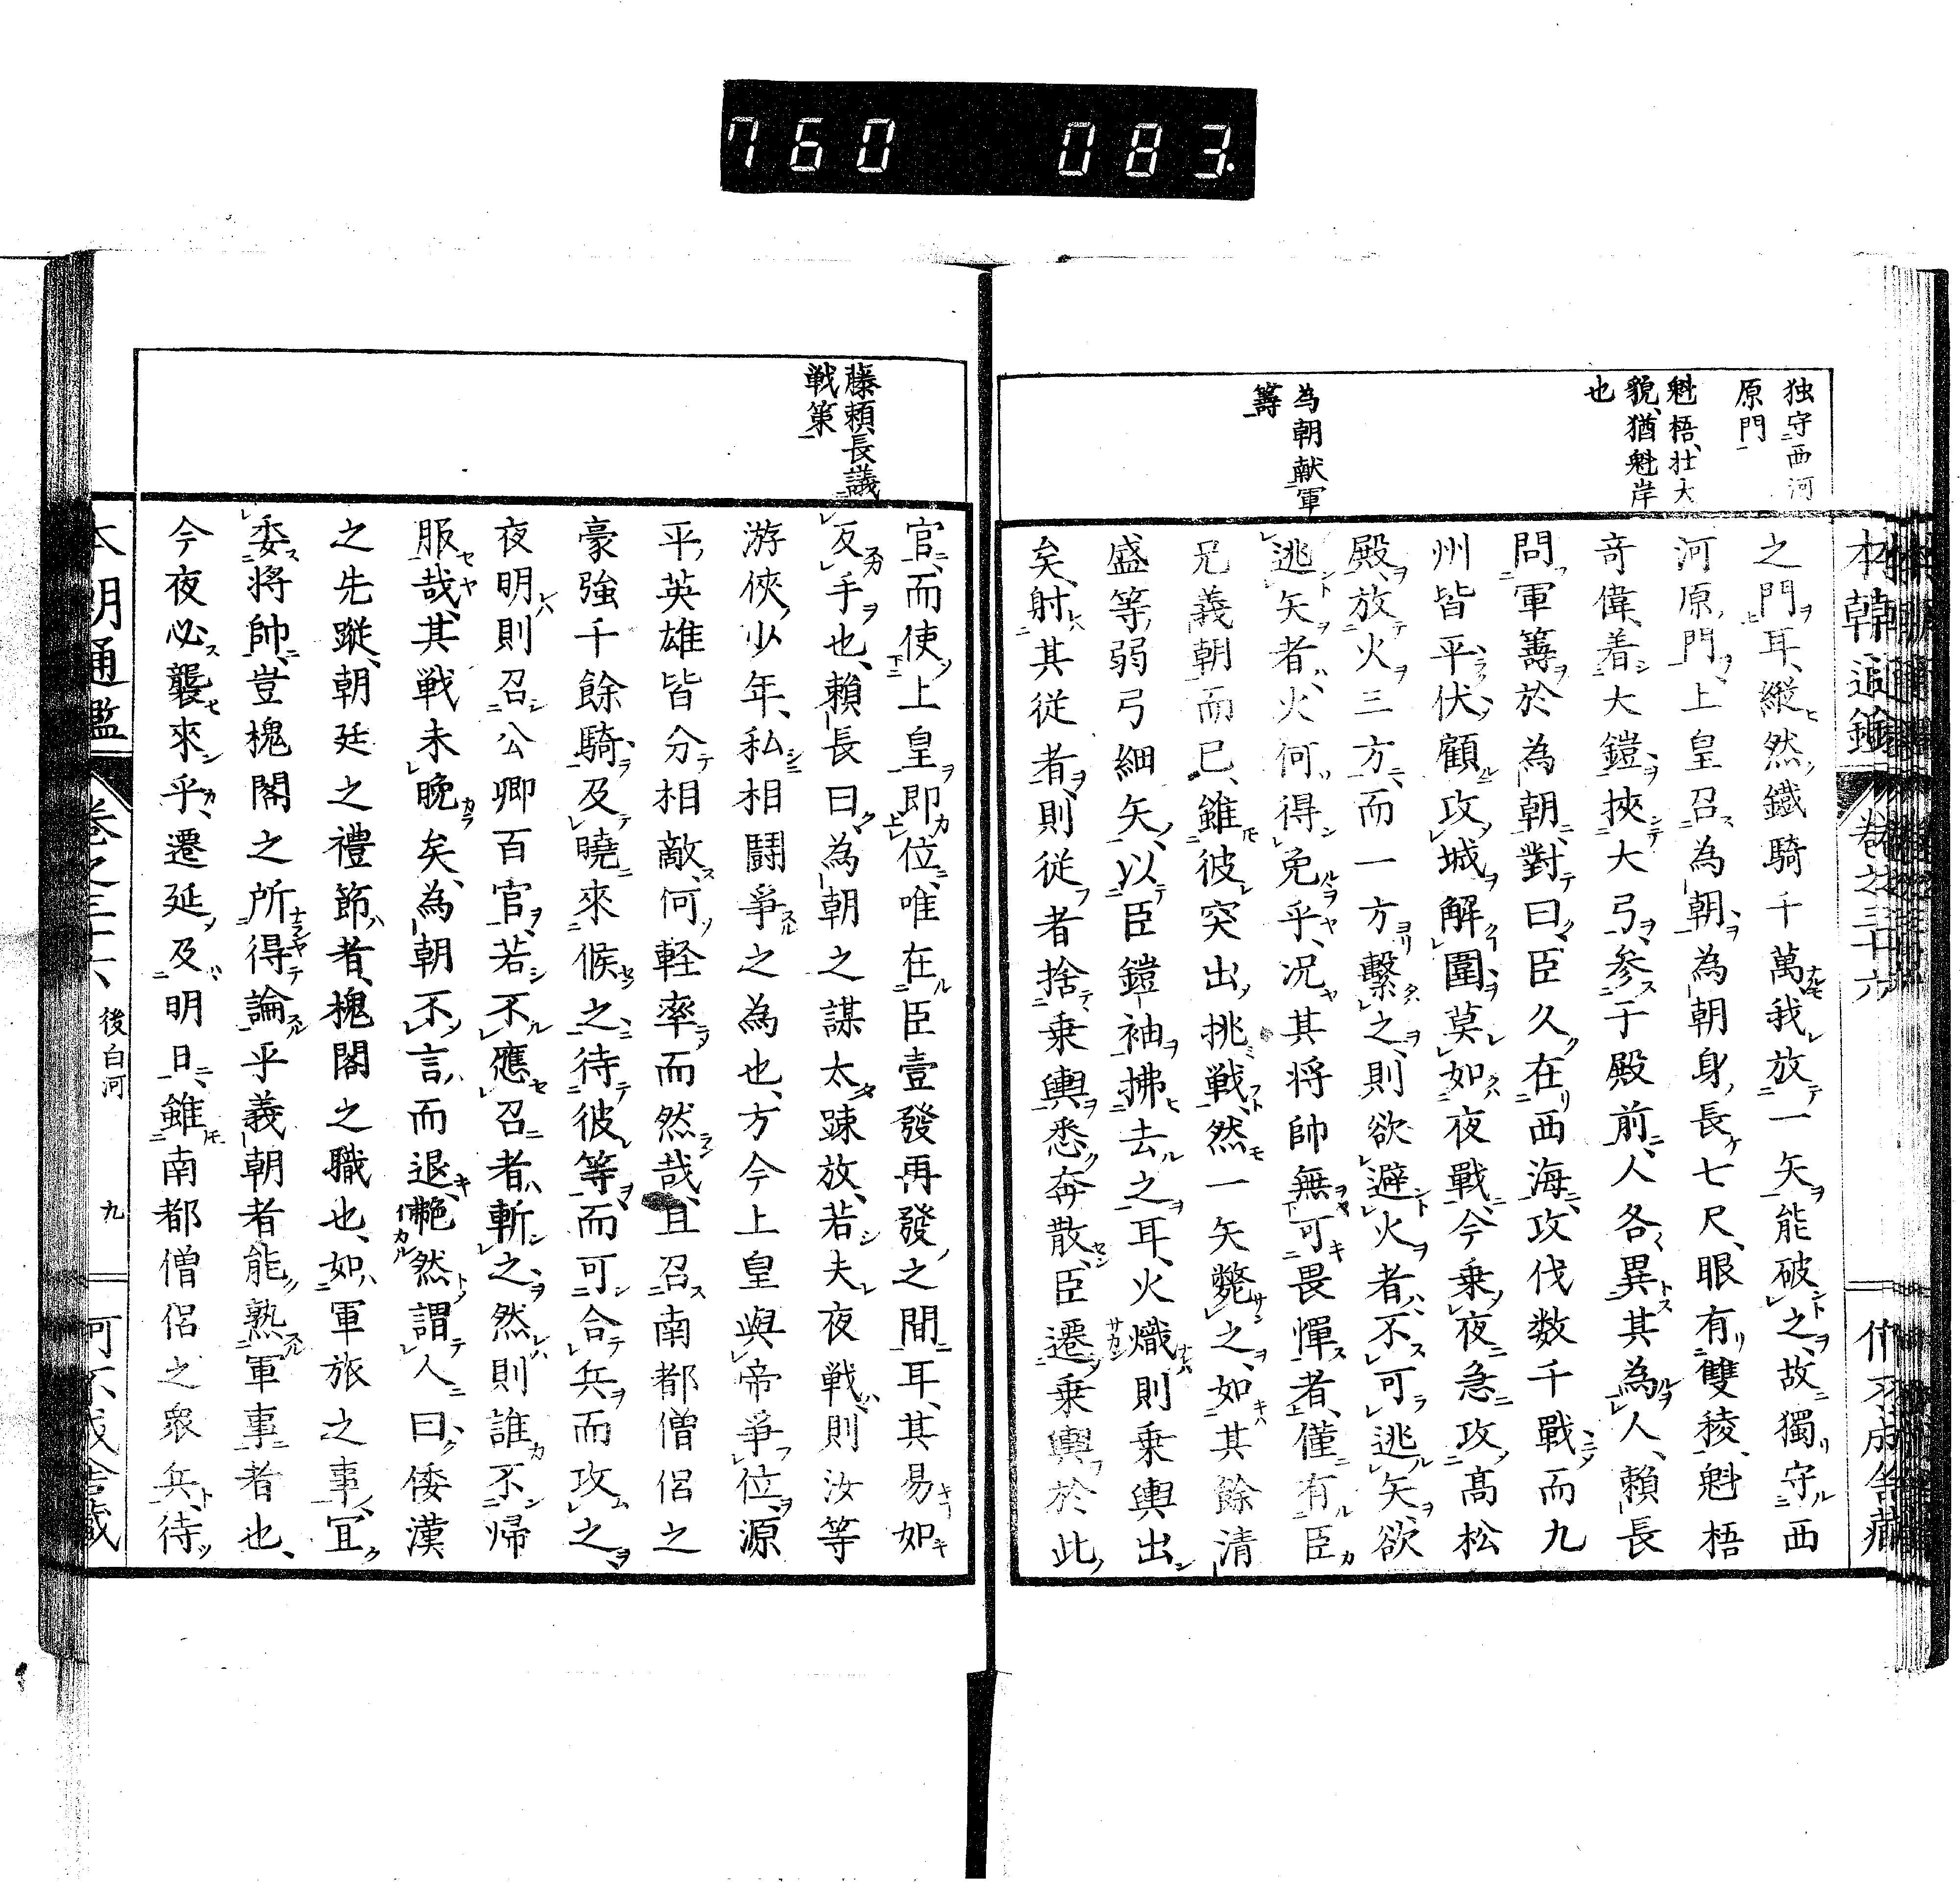 760 083
独守西河
原門
魁梧、壮大
貌、猶魁岸
也
為朝献軍
籌
之門耳、縱然鐵騎千萬我放一矢能破之、故獨守西
河原門、上皇召為朝為朝身長七尺、眼有雙稜、魁梧
奇偉、着大鎧、挾大弓、参于殿前、人各異其為人、賴長
問軍籌於為朝、對曰、臣久在西海、攻伐数千戰、而九
州皆平伏、顧攻城解圍莫如夜戰、今乗夜急攻高松
殿、放火三方、而一方繫之、則欲避火者、不可逃矢、欲
逃矢者、火何得免乎、况其将帥無可畏惲者、僅有臣
兄義朝而已、雖彼突出挑戦、然一矢斃之、如其餘清
盛等弱弓細矢、以臣鎧袖拂去之耳、火熾則乗輿出
矣、射其従者、則従者捨乗輿悉奔散、臣遷乗輿於此
藤頼長議
戦策
官、而使上皇即位、唯在臣壹發再發之間耳、其易如
反手也、賴長曰為朝之謀太踈放、若夫夜戦、則汝等
游俠少年、私相鬪爭之為也、方今上皇與帝爭位、源
平英雄皆分相敵、何軽率而然哉、且召南都僧侶之
豪強千餘騎、及曉來候之、待彼等而可合兵而攻之、
夜明則召公卿百官、若不應召者、斬之、然則誰不帰
服哉、其戦未晩矣、為朝不言而退、艴然謂人曰、倭漢
之先蹤、朝廷之禮節者、槐閣之職也、如軍旅之事、宜
委将帥、豈槐閣之所得論乎義朝者能熟軍事者也、
今夜必襲來乎、遷延及明日、雖南都僧侶之衆兵、待
本朝通鑑
後白河
九